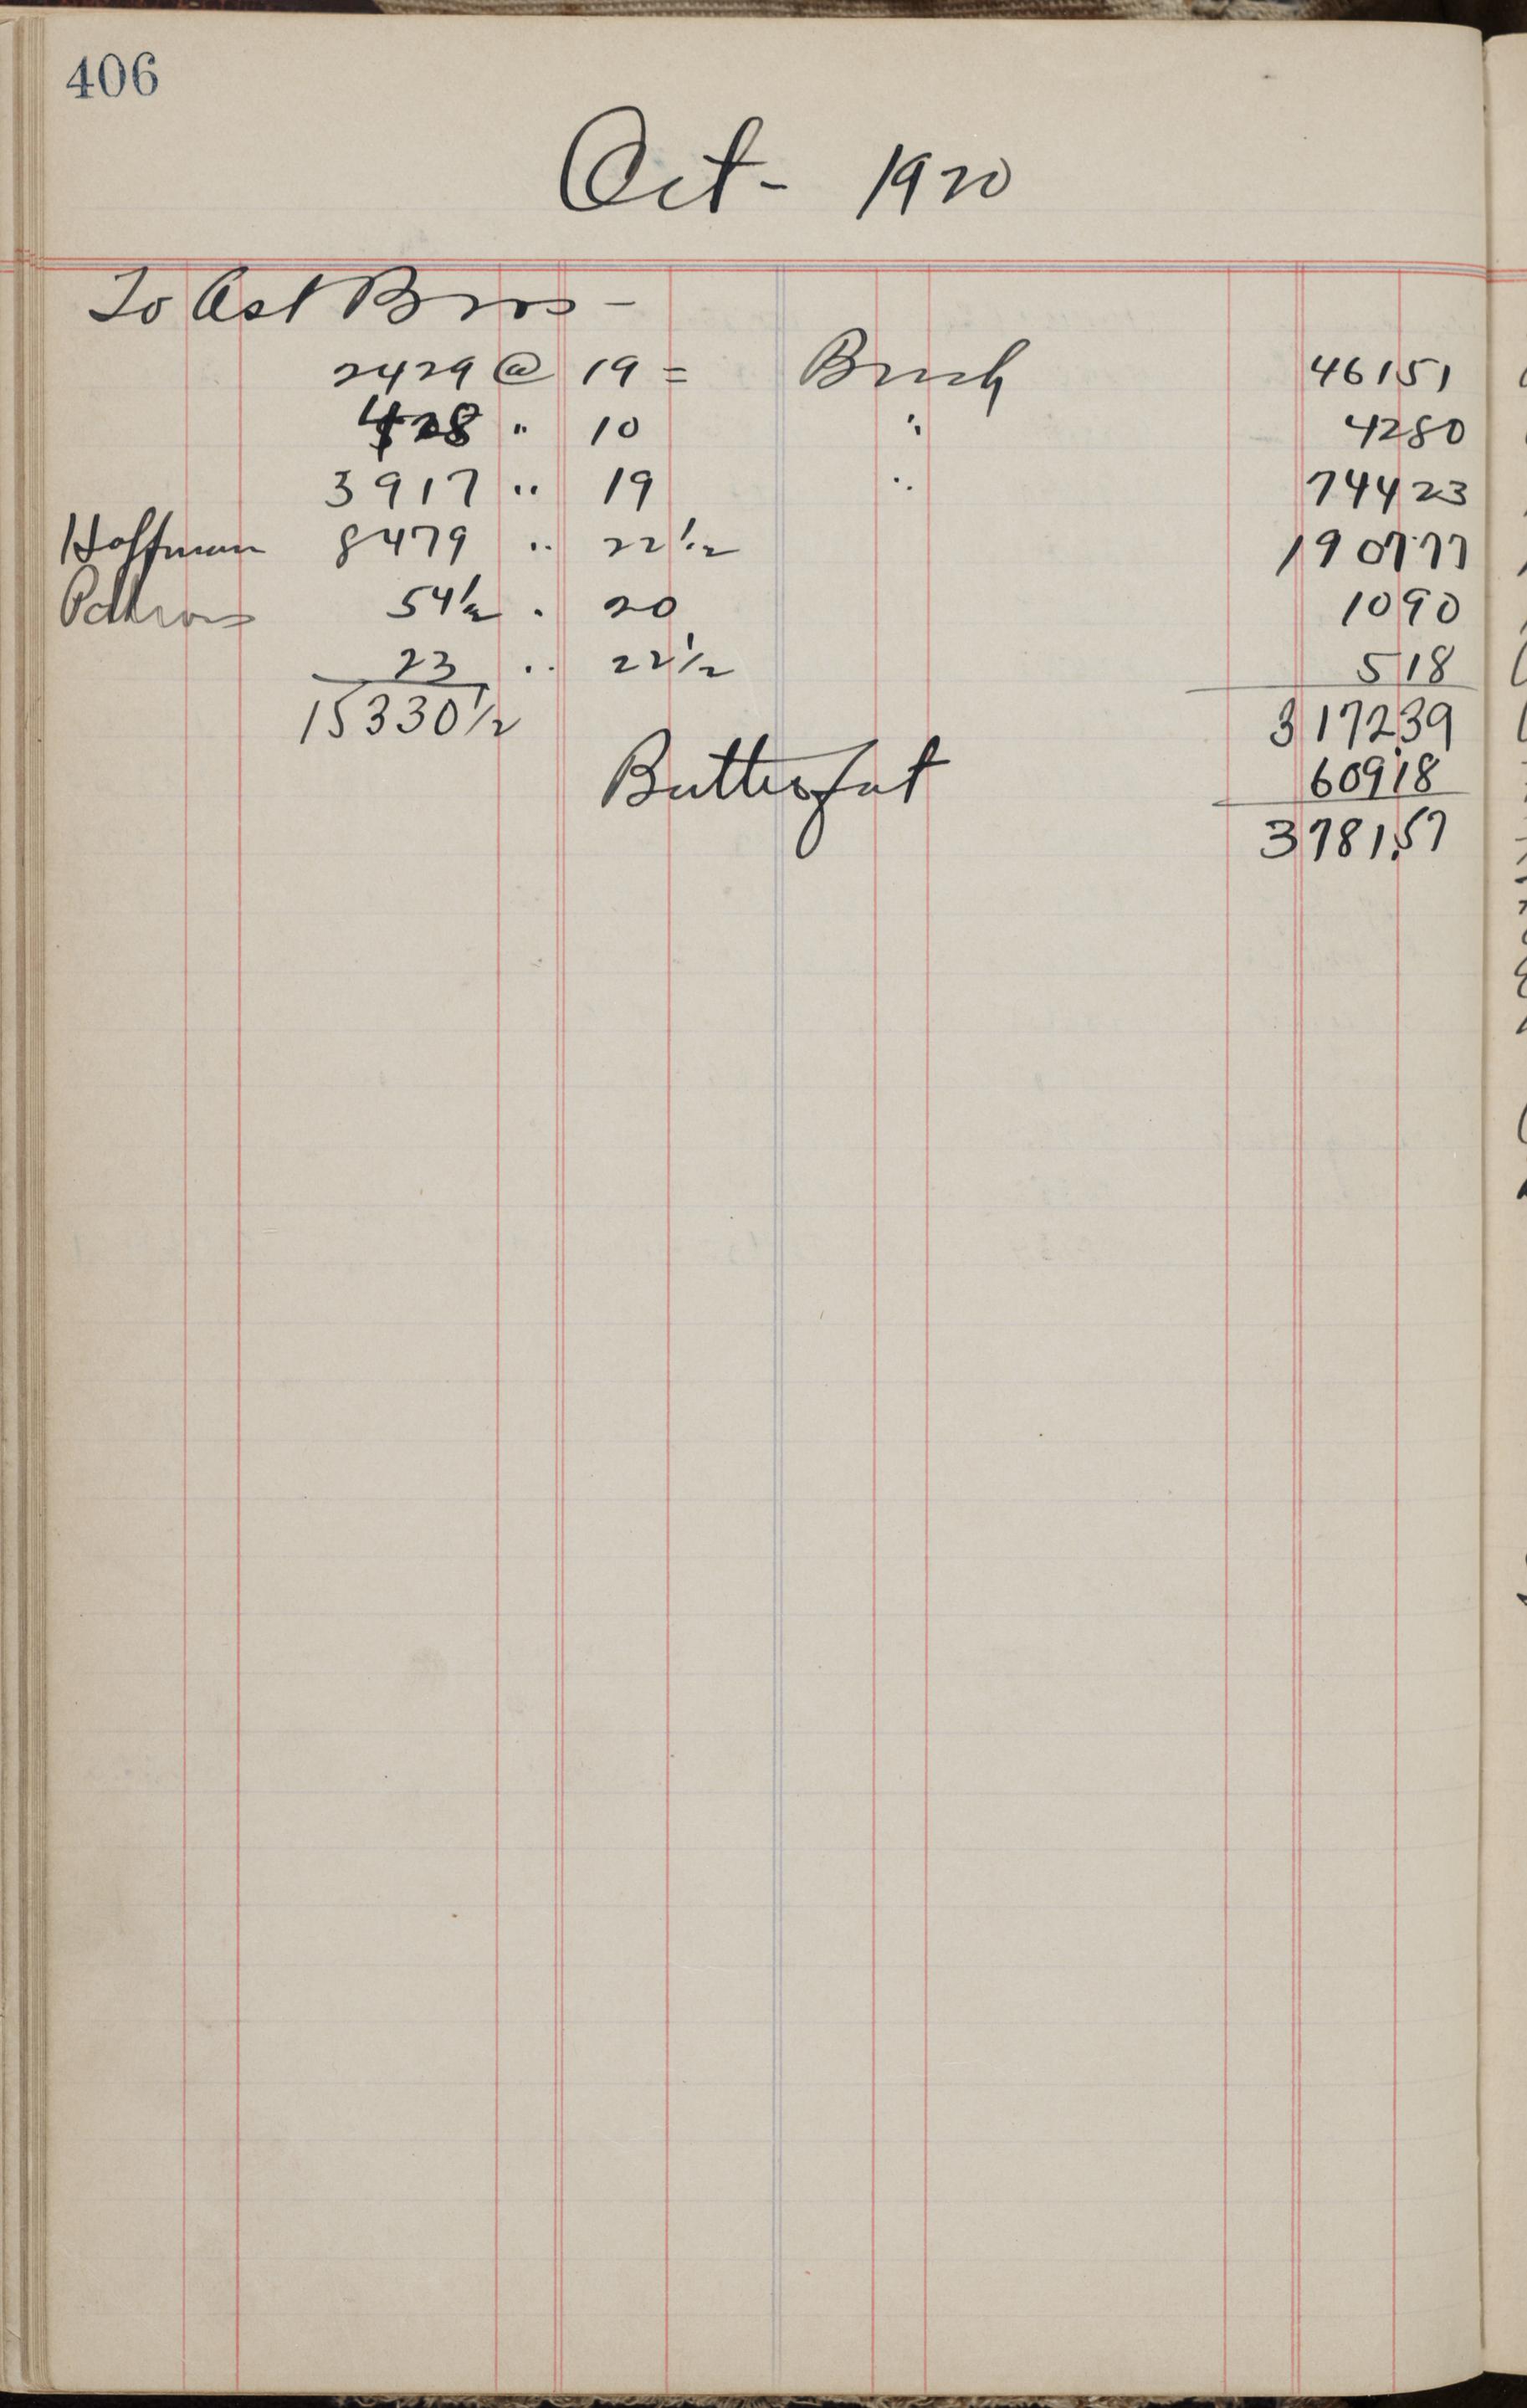 406
Oct - 1920
To Ast Bros -
2429 @ 19 = Brick 46151
428 " 10 " 4280
3917 " 19 " 74423
Hoffman 8479 " 22 1/2 190777
Patrons 54 1/2 " 20 1090
23 " 22 1/2 518
15330 1/2 317239
Butterfat 60918
3781.57